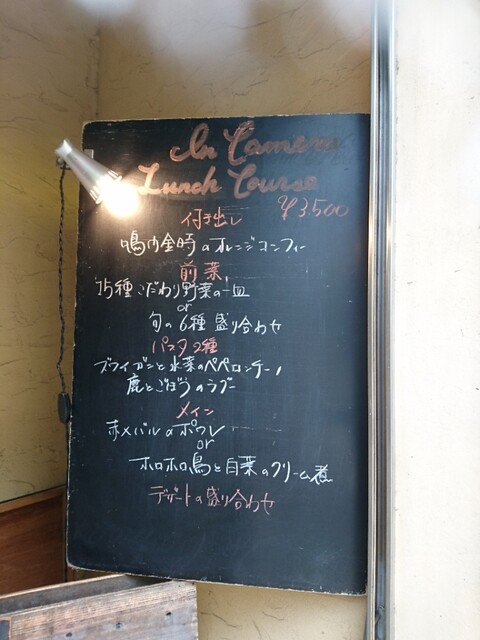 In Camera
Lunch Course
¥3,500
付き出し
鳴門金時のオレンジコンフィー
前菜
15種こだわり野菜の一皿
or
旬の6種盛り合わせ
パスタ2種
ブライガンと水菜のペペロンチーノ
鹿とごぼうのラグー
メイン
赤メバルのポワレ
or
ホロホロ鳥と白菜のクリーム煮
デザートの盛り合わせ